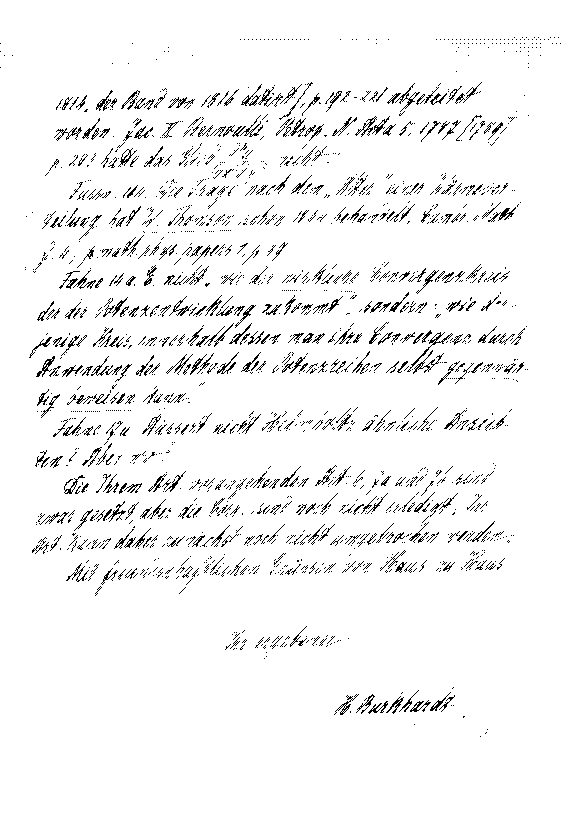 1816, der Band von 1816 datirt], p. 192-221 abgeleitet
worden. Jac. II Bernoulli, Petrop. N. Acta 5. 1787 [1789]
p. 203 hatte das nicht.
Fahne Die Frage nach dem „Alter" einer Wärmever-
teilung hat W. Thomson schon behandelt, Math
J. 4, p. math. phys. papers 1, p. 39
Fahne 14 a. E. nicht „wie der wirkliche Convergenzkreis
der der Potenzentwicklung zukommt", sondern: „wie der-
jenige Kreis, innerhalb dessen man ihre Convergenz durch
Anwendung der Methode der Potenzreihen selbst gegenwär-
tig beweisen kann."
Fahne Äussert nicht Helmholtz ähnliche Ansich-
ten? Aber wo?
Die Ihrem Art. vorangehenden Art. 6, 7a und 7b sind
zwar gesetzt, aber die sind noch nicht erledigt, Ihr
Art. kann daher zunächst noch nicht umgebrochen werden.
Mit freundschaftlichen Grüssen von Haus zu Haus
Ihr ergebener
H. Burkhardt